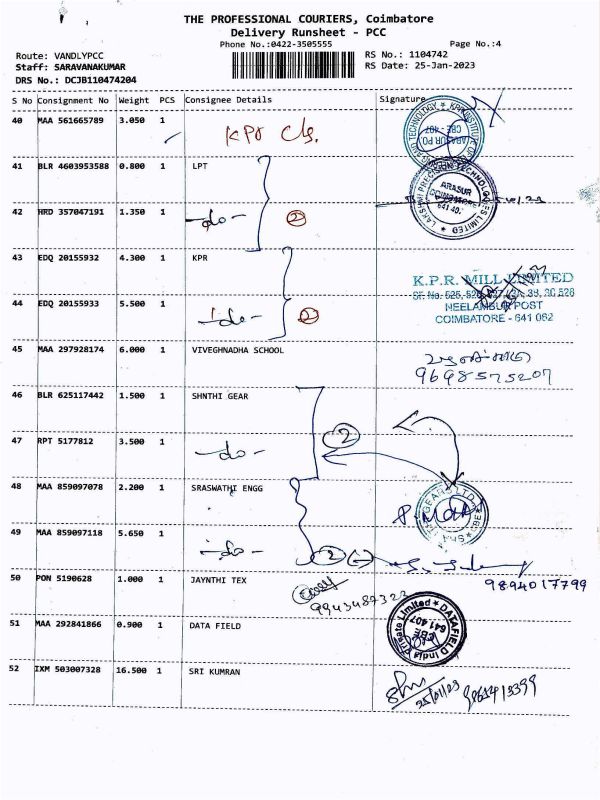 THE PROFESSIONAL COURIERS, Coimbatore
Delivery Runsheet - PCC
Phone No.:0422-3505555
Page No.:4
Route: VANDLYPCC
RS No.: 1104742
Staff: SARAVANAKUMAR
RS Date: 25-Jan-2023
DRS No.: DCJB110474204
S No Consignment No Weight PCS Consignee Details Signature
40 MAA 561665789 3.050 1 KPR Clg.
41 BLR 4603953588 0.800 1 LPT
ARASUR
COIMBATORE
641 407
42 HRD 357047191 1.350 1 -do- 2
43 EDQ 20155932 4.300 1 KPR
K.P.R. MILL LIMITED
NEELAMBUR POST
COIMBATORE - 641 062
44 EDQ 20155933 5.500 1 -do- 2
45 MAA 297928174 6.000 1 VIVEGHNADHA SCHOOL
9698575207
46 BLR 625117442 1.500 1 SHNTHI GEAR
47 RPT 5177812 3.500 1 -do- 2
48 MAA 859097078 2.200 1 SRASWATHI ENGG
49 MAA 859097118 5.650 1 -do- 2
50 PON 5190628 1.000 1 JAYNTHI TEX
9943487322
9894017799
51 MAA 292841866 0.900 1 DATA FIELD
DATAFIELD India Private Limited
CBE
641 407
52 IXM 503007328 16.500 1 SRI KUMRAN
25/01/23